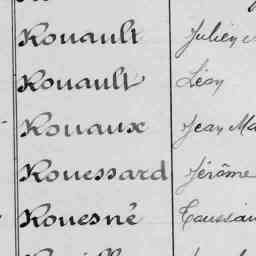 Rouault Julien
Rouault Léon
Rouaux Jean Ma
Rouessard Jérôme
Rouesné Toussain